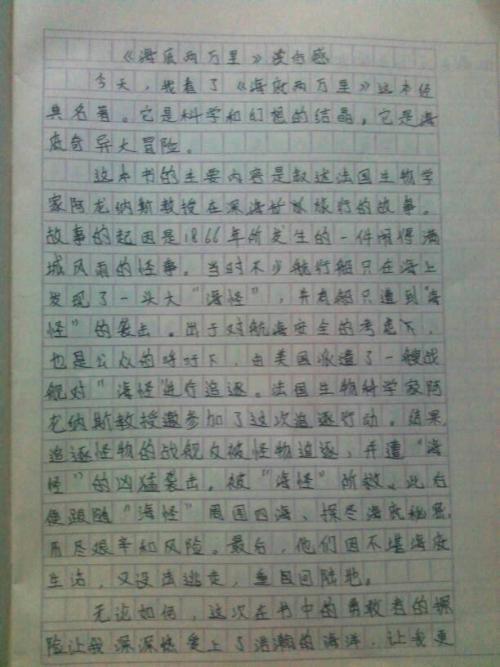 《海底两万里》读后感
今天，我看了《海底两万里》这本经
典名著。它是科学和幻想的结晶，它是海
底奇异大冒险。
这本书的主要内容是叙述法国生物学
家阿龙纳斯教授在深海旅行的故事。
故事的起因是1866年所发生的一件闹得满
城风雨的怪事。当时不少航行船只在海上
发现了一头大“海怪”，并有船只遭到“海
怪”的袭击。出于对航海安全的考虑下，
也是公众的呼吁下，由美国派遣了一艘战
舰对“海怪”进行追逐。法国生物科学家阿
龙纳斯教授邀参加了这次追逐行动。结果
追逐怪物的战舰反被怪物追逐，并遭“海
怪”的凶猛袭击。被“海怪”所救。此后
便跟随“海怪”周国四海、探尽海底秘密，
历尽艰辛和风险。最后，他们因不堪海底
生活，又设法逃走，重回陆地。
无论如何，这次在书中的勇敢者的探
险让我深深热爱上了浩瀚的海洋，让我更